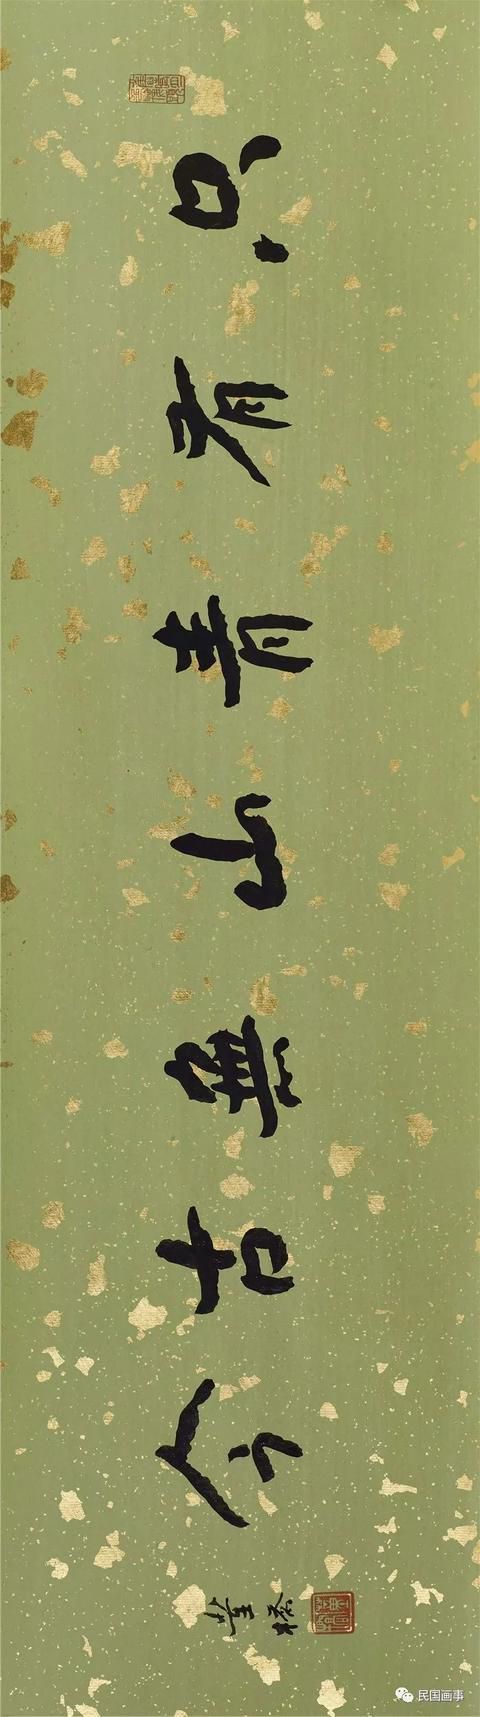 只有青山無古今
董桥
民国画事